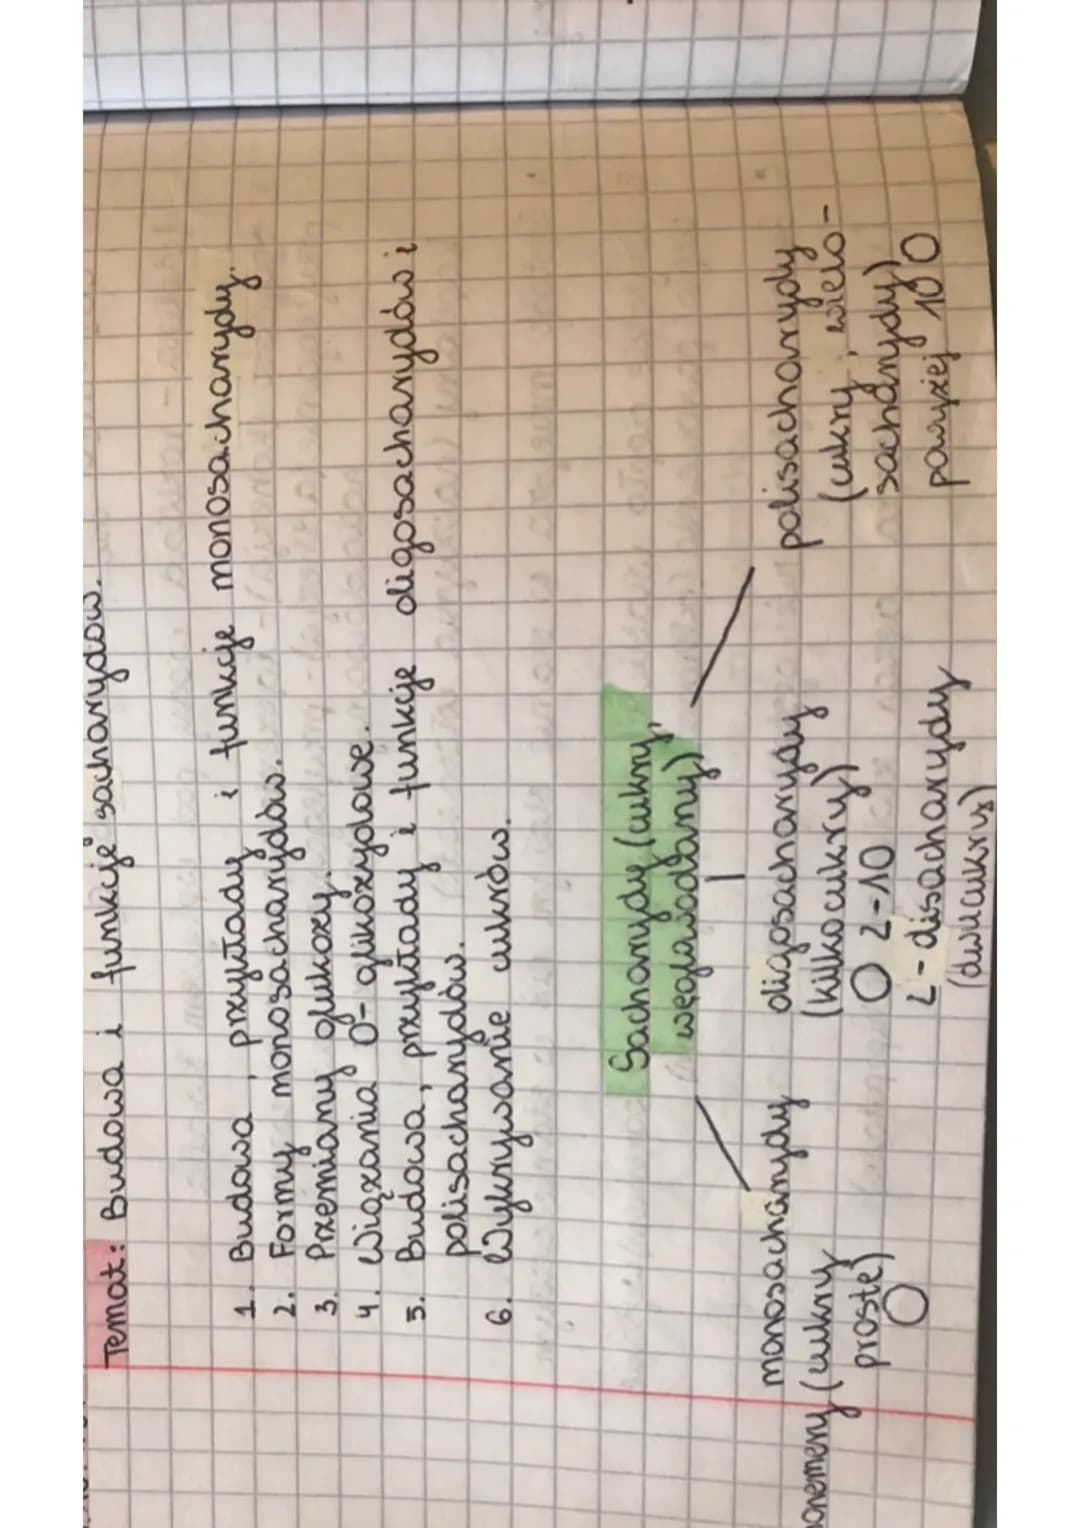 Temat: Budowa i funkcje sacharydów.
1. Budowa, przykłady i funkcje monosacharydy.
2. Formy monosacharydów.
3. Przemiany glukozy.
4. Wiązania O-glikozydowe.
5. Budowa, przykłady i funkcje oligosacharydów i
polisacharydów.
6. Wykrywanie cukrów.
Sacharydy (cukry,
węglowodany)
monosacharydy
(cukry
proste)
oligosacharydy
(kilkocukry)
2-10
2-disacharydy
(dwucukry)
polisacharydy
(cukry, wielo-
sacharydy)
powyżej 10